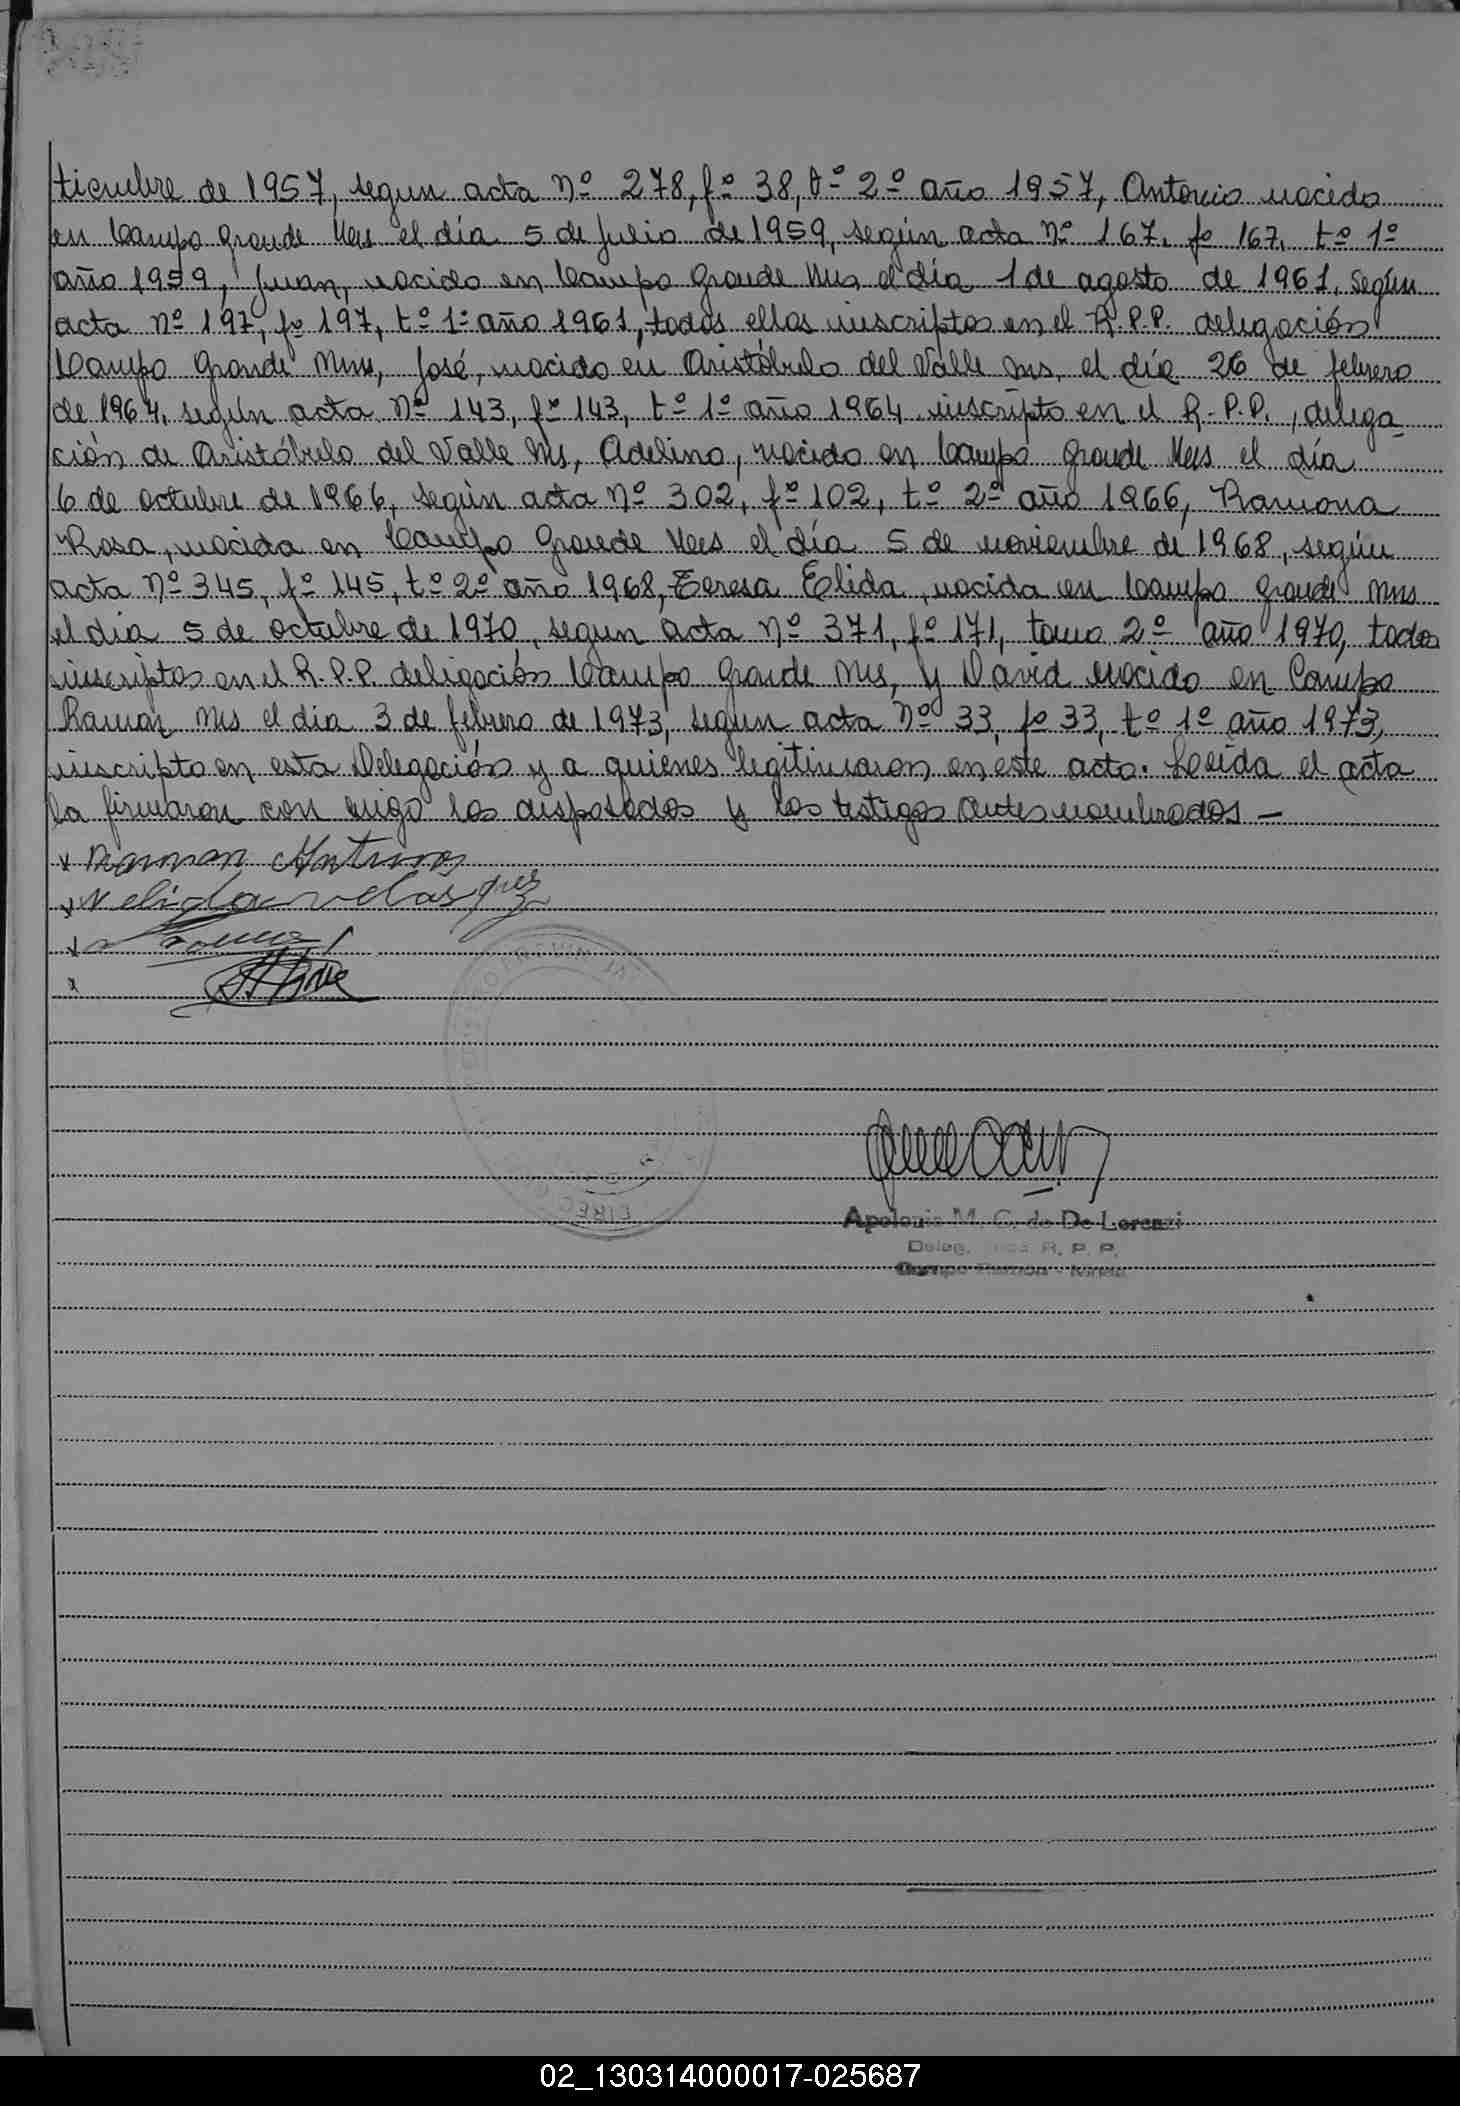 tiembre de 1957, segun acta Nº 278, fº 38, tº 2º año 1957, Antonio nacido
en Campo Grande Mns el día 5 de julio de 1959, según acta Nº 167, fº 167, tº 1º
año 1959, Juan, nacido en Campo Grande Mns el día 1 de agosto de 1961, según
acta Nº 197, fº 197, tº 1º año 1961, todos ellos inscriptos en el R.P.P. delegación
Campo Grande Mns, José, nacido en Aristóbulo del Valle Mns, el día 26 de febrero
de 1964, según acta Nº 143, fº 143, tº 1º año 1964, inscripto en el R.P.P., delega-
ción de Aristóbulo del Valle Mns, Adelino, nacido en Campo Grande Mns el día
6 de octubre de 1966, según acta Nº 302, fº 102, tº 2º año 1966, Ramona
Rosa, nacida en Campo Grande Mns el día 5 de noviembre de 1968, según
acta Nº 345, fº 145, tº 2º año 1968, Teresa Elida, nacida en Campo Grande Mns
el día 5 de octubre de 1970, segun acta Nº 371, fº 171, tomo 2º año 1970, todos
inscriptos en el R.P.P. delegación Campo Grande Mns, y David nacido en Campo
Ramon Mns el dia 3 de febrero de 1973, segun acta Nº 33, fº 33, tº 1º año 1973,
inscripto en esta Delegación y a quienes legitimaron en este acto. Leída el acta
la firmaron con migo los desposados y los testigos antes nombrados —
x Ramon Antunes
x Nelida velasquez
x
x
Apolonia M. C. de De Lorenzi
Deleg. R. P. P.
Campo Ramon - Mnes.
02_130314000017-025687